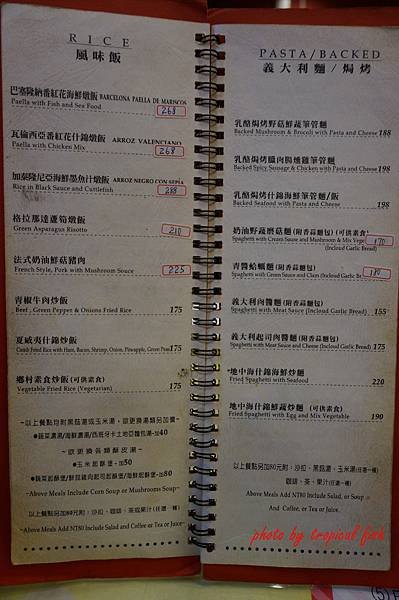 RICE
風味飯
巴塞隆納番紅花海鮮燉飯 BARCELONA PAELLA DE MARISCOS
Paella with Fish and Sea Food 268
瓦倫西亞番紅花什錦燉飯 ARROZ VALENCIANO
Paella with Chicken Mix 268
加泰隆尼亞海鮮墨魚汁燉飯 ARROZ NEGRO CON SEPIA
Rice in Black Sauce and Cuttlefish 288
格拉那達蘆筍燉飯
Green Asparagus Risotto 210
法式奶油鮮菇豬肉
French Style, Pork with Mushroom Souce 225
青椒牛肉炒飯
Beef , Green Pepper & Onions Fried Rice 175
夏威夷什錦炒飯
Comb Fried Rice with Ham, Bacon, Shrimp, Onion, Pineapple, Green Peas 175
鄉村素食炒飯 (可供素食)
Vegetable Fried Rice (Vegetarian) 175
~以上餐點均附黑菇湯或玉米湯,欲更換湯類另加價~
●蔬菜濃湯/海鮮濃湯/西班牙卡土地亞麵包湯-加40
~欲更換各類酥皮湯~
●玉米起酥堡-加50
●蔬菜起酥堡/鮮菇雞肉起司起酥堡/海鮮起酥堡-加80
~Above Meals Include Corn Soup or Mushrooms Soup~
~以上餐點另加80元附:沙拉、咖啡、茶或果汁(任選一種)
~Above Meals Add NT80 Include Salad and Coffee or Tea or Juice~
PASTA/BACKED
義大利麵/焗烤
乳酪焗烤野菇鮮蔬筆管麵
Backed Mushroom & Brocoli with Pasta and Cheese 188
乳酪焗烤臘肉腸燻雞筆管麵
Backed Spicy, Sausage & Chicken with Pasta and Cheese 198
乳酪焗烤什錦海鮮筆管麵/飯
Backed Seafood with Pasta and Cheese 198
奶油野蔬蘑菇麵 (附香蒜麵包) (可供素食)
Spaghetti with Cream Sauce and Mushroom & Mix Vege (Incloud Garlic Bread) 170
青醬蛤蠣麵 (附香蒜麵包)
Spaghetti with Green Sauce and Clam (Incloud Garlic Br 180
義大利肉醬麵 (附香蒜麵包)
Spaghetti with Meat Sauce (Incloud Garlic Bread) 155
義大利起司肉醬麵 (附香蒜麵包)
Spaghetti with Meat Sauce and Cheese (Incloud Garlic Bread) 175
地中海什錦海鮮炒麵
Fried Spaghetti with Seafood 220
地中海什錦鮮蔬炒麵 (可供素食)
Fried Spaghetti with Egg and Mix Vegetable 190
以上餐點另加80元附:沙拉、黑菇湯、玉米湯(任選一種)
咖啡、茶、果汁(任選一種)
~Above Meals Add NT80 Include Salad, or Soup
And Coffee, or Tea or Juice.~
photo by tropicul fish